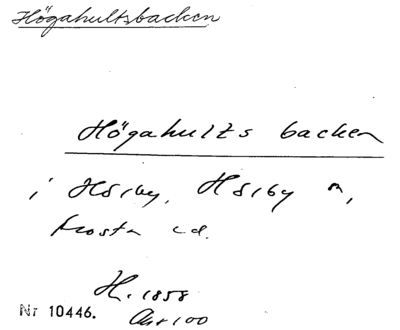 Högahultsbacken
Högahults backen
i Hörby, Hörby sn,
Frosta hd.
H. 1858
Nr 10446.